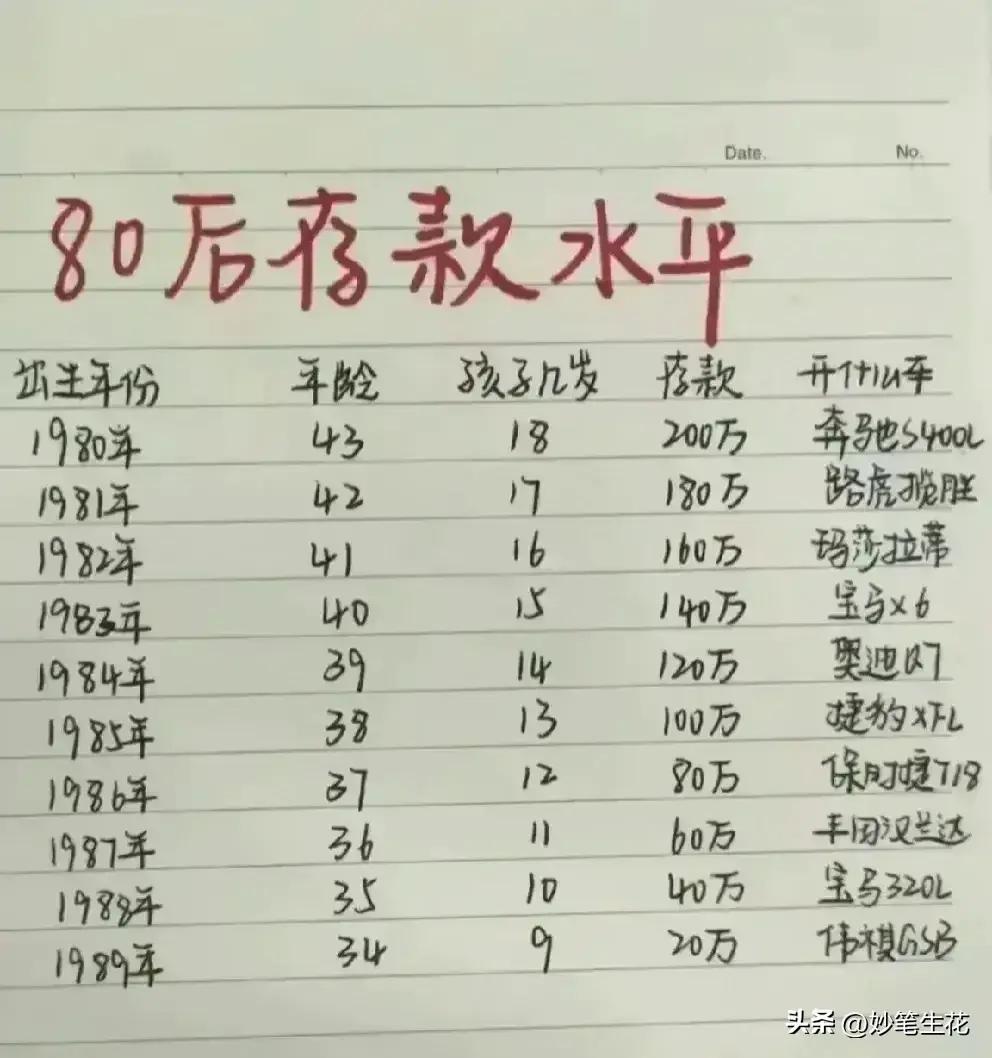 Date. No.
80后存款水平
出生年份 年龄 孩子几岁 存款 开什么车
1980年 43 18 200万 奔驰S400L
1981年 42 17 180万 路虎揽胜
1982年 41 16 160万 玛莎拉蒂
1983年 40 15 140万 宝马X6
1984年 39 14 120万 奥迪Q7
1985年 38 13 100万 捷豹XFL
1986年 37 12 80万 保时捷718
1987年 36 11 60万 丰田汉兰达
1988年 35 10 40万 宝马320L
1989年 34 9 20万 伟祺GSB
头条 @妙笔生花